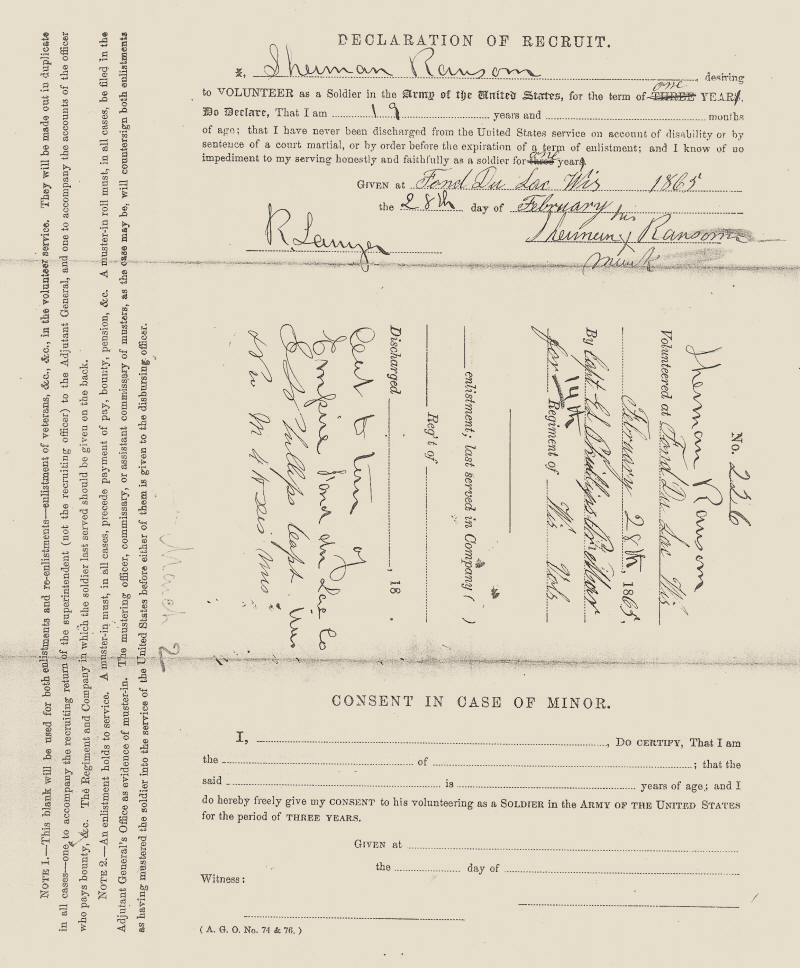 DECLARATION OF RECRUIT.
I, Sherman Ransom, desiring
to VOLUNTEER as a Soldier in the Army of the United States, for the term of THREE one YEARS,
Do Declare, That I am 19 years and months
of age; that I have never been discharged from the United States service on account of disability or by
sentence of a court martial, or by order before the expiration of a term of enlistment; and I know of no
impediment to my serving honestly and faithfully as a soldier for three one years.
GIVEN at Fond Du Lac Wis 1865
the 28th day of February
his
R Sawyer Sherman X Ransom
mark
No. 226
Sherman Ransom
Volunteered at Fond Du Lac Wis
February 28th, 1865,
By Capt Ed
for 14th Regiment of Wis Vols
enlistment; last served in Company ( )
Reg't of
Discharged , 18 .
Cent to term of
Empire Fond du Lac Co
March 2
NOTE 1.—This blank will be used for both enlistments and re-enlistments—enlistment of veterans, &c., &c., in the volunteer service. They will be made out in duplicate
in all cases—one to accompany the recruiting return of the superintendent (not the recruiting officer) to the Adjutant General, and one to accompany the accounts of the officer
who pays bounty, &c. The Regiment and Company in which the soldier last served should be given on the back.
NOTE 2.—An enlistment holds to service. A muster-in must, in all cases, precede payment of pay, bounty, pension, &c. A muster-in roll must, in all cases, be filed in the
Adjutant General's Office as evidence of muster-in. The mustering officer, commissary, or assistant commissary of musters, as the case may be, will countersign both enlistments
as having mustered the soldier into the service of the United States before either of them is given to the disbursing officer.
CONSENT IN CASE OF MINOR.
I, , DO CERTIFY, That I am
the of ; that the
said is years of age; and I
do hereby freely give my CONSENT to his volunteering as a SOLDIER in the ARMY OF THE UNITED STATES
for the period of THREE YEARS.
GIVEN at
the day of
Witness:
( A. G. O. No. 74 & 76. )